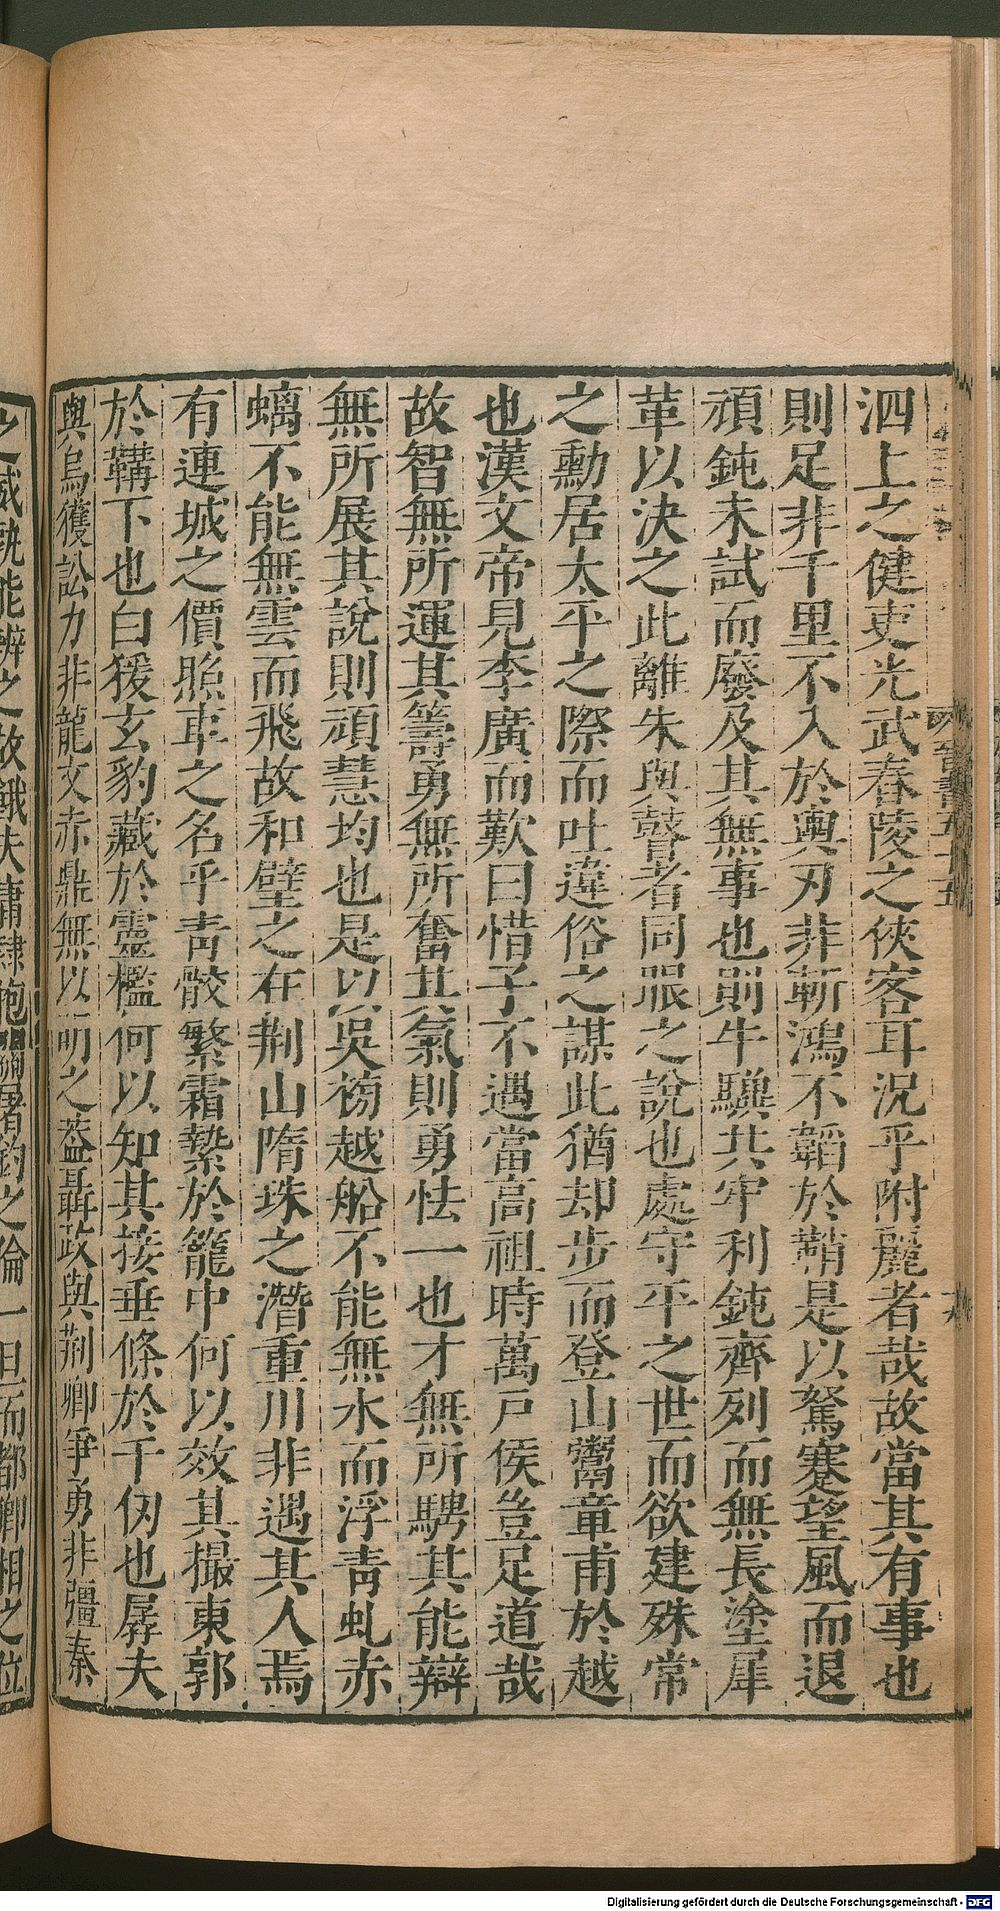 泗上之健吏光武春陵之俠客耳況乎附麗者哉故當其有事也
則足非千里不入於輿刃非斬鴻不韜於鞘是以駑蹇望風而退
頑鈍未試而廢及其無事也則牛驥共牢利鈍齊列而無長塗犀
革以決之此離朱與瞽者同眼之說也處守平之世而欲建殊常
之勳居太平之際而吐違俗之謀此猶却步而登山鬻章甫於越
也漢文帝見李廣而歎曰惜子不遇當高祖時萬戶侯豈足道哉
故智無所運其籌勇無所奮其氣則勇怯一也才無所騁其能辯
無所展其說則頑慧均也是以吳榜越船不能無水而浮青虬赤
螭不能無雲而飛故和璧之在荆山隋珠之潛重川非遇其人焉
有連城之價照車之名乎青骹繁霜縶於籠中何以效其撮東郭
於韝下也白猨玄豹藏於靈檻何以知其接垂條於千仞也孱夫
與烏獲訟力非龍文赤鼎無以明之蓋聶政與荆卿爭勇非彊秦
之威孰能辨之故餓夫庸隸抱關屠釣之倫一旦而都卿相之位
晉書五十五
Digitalisierung gefördert durch die Deutsche Forschungsgemeinschaft - DFG